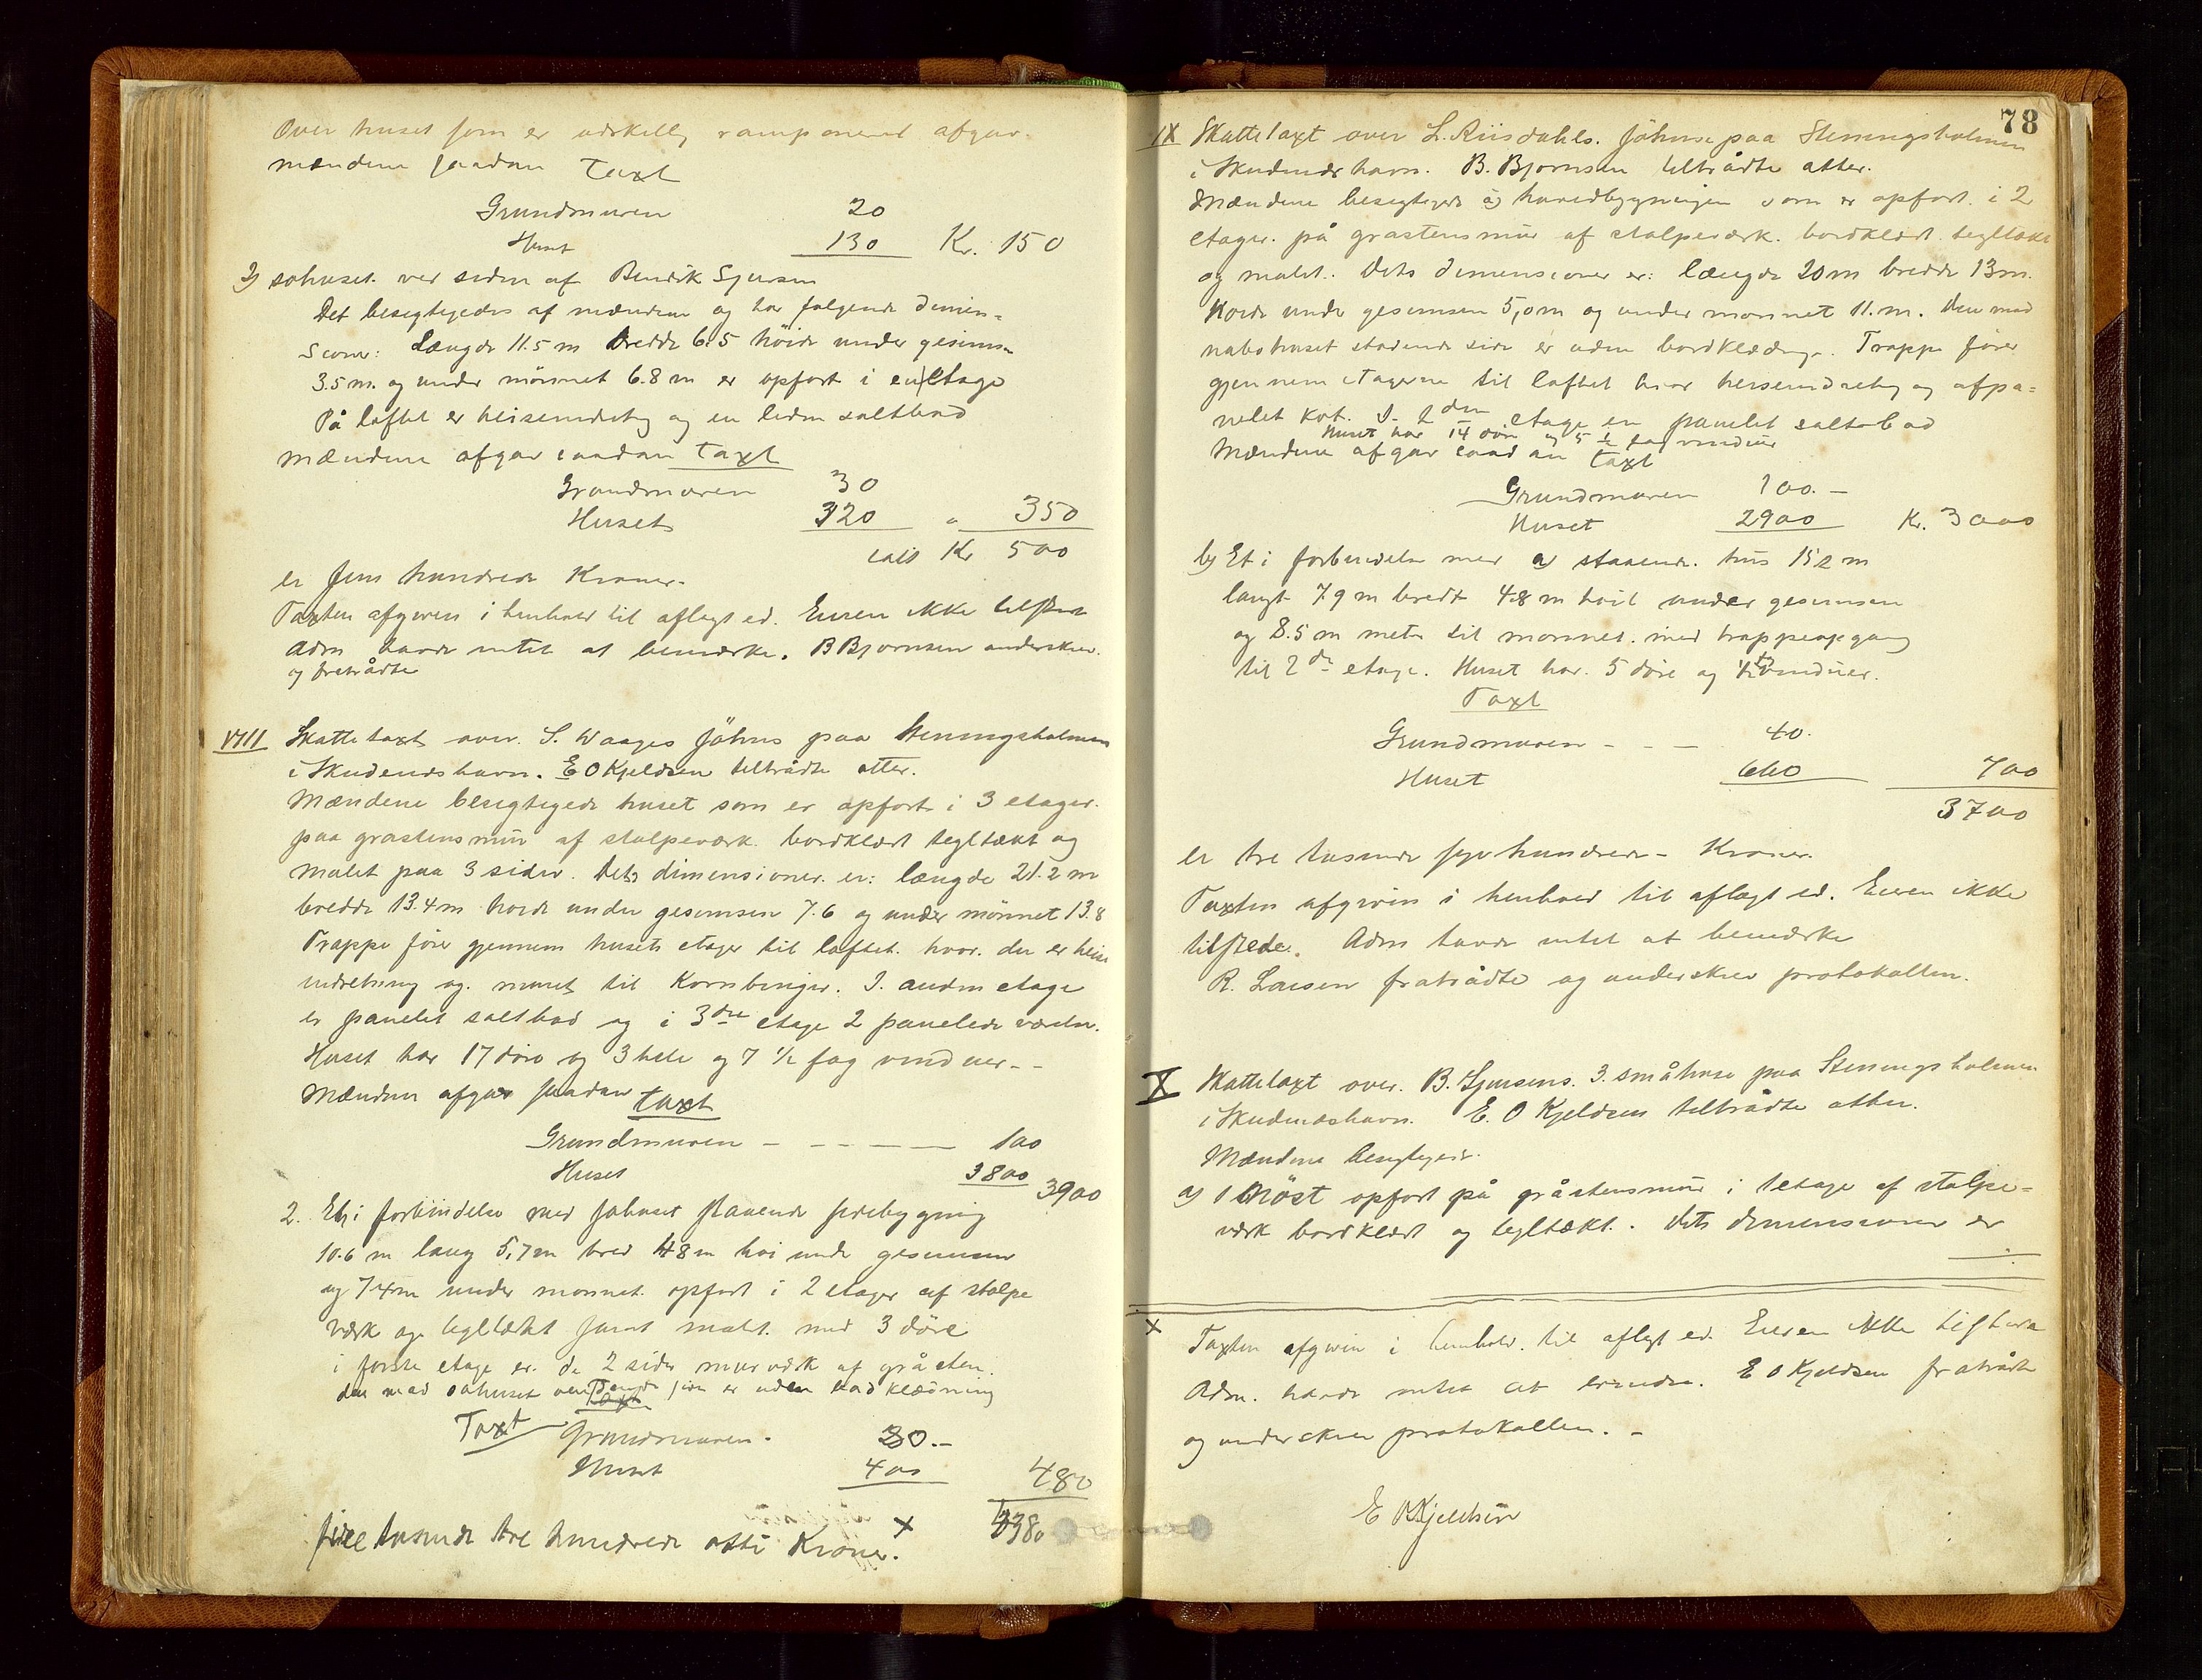 Over huset som er adskillig ramponeret afgav
mændene saadan Taxt
Grundmuren 20
Huset 130 Kr. 150
2) søhuset ved siden af Bendik Sjursen
Det besigtigedes af mændene og har følgende dimen=
sioner: Længde 11.5 m bredde 6.5 høide under gesimsen
3.5 m. og under mønnet 6.8 m er opført i en etage
På loftet er heiseindretng og en liden saltbod
mændene afgav saadan Taxt
Grundmuren 30
Huset 320 " 350
ialt Kr 500
er fem hundrede Kroner.
Taxten afgives i henhold til aflagt ed. Eieren ikke tilstede
Adm havde intet at bemærke. B Bjornsen underskrev
og fratrådte
VIII Skattetaxt over S. Waages søhus paa Steiningsholmen
i Skudeneshavn. E O Kjeldsen tiltrådte atter.
Mændene besigtigede huset som er opført i 3 etager
paa gråstensmur af stolpeværk bordklædt tegltækt og
malet paa 3 sider. Dets dimensioner er: længde 21.2 m
bredde 13.4 m høide under gesimsen 7.6 og under mønnet 13.8
Trappe fører gjennem husets etager til loftet hvor der er heise
indretning og til Kornbinger. I anden etage
er panelet saltbod og i 3die etage 2 panelede værelser.
Huset har 17 døre og 3 hele og 7 1/2 fag vinduer - -
Mændene afgav saadan Taxt
Grundmuren - - - - - 100
Huset 3800 3900
2. Et i forbindelse med søhuset staaende sidebygning
10.6 m lang 5,7 m bred 4.8 m høi under gesimsen
og 7.4 m under mønnet opført i 2 etager af stolpe
værk og tegltækt samt malet med 3 døre
i første etage er de 2 sider murværk af gråsten.
den mod søhuset vendende side er uden bordklædning
Taxt Grundmuren. 80.-
Huset 400 480
fire tusinde tre hundrede otti Kroner. x 4380
78
IX Skattetaxt over L. Riisdahls. søhuse paa Steiningsholmen
i Skudeneshavn. B. Bjornsen tiltrådte atter.
Mændene besigtigede a) hovedbygningen som er opført i 2
etager på gråstensmur af stolpeværk. bordklædt tegltækt
og malet. Dets dimensioner er: længde 20 m bredde 13 m.
Høide under gesimsen 5,0 m og under mønnet 11. m. Den mod
nabohuset stående side er uden bordklædning. Trappe fører
gjennem etagerne til loftet hvor heiseindretng og afpa=
nelet kot. I 2den etage en panelet saltbod
Huset har 14 døre og 5 1/2 fag vinduer
Mændene afgav saadan Taxt
Grundmuren 100.-
Huset 2900 Kr. 3000
b) Et i forbindelse med a) staaende hus 15.2 m
langt 7.9 m bredt 4.8 m høit under gesimsen
og 8.5 m meter til mønnet. med trappeopgang
til 2de etage. Huset har 5 døre og vinduer.
Taxt
Grundmuren - - - 40.
Huset 660 700
3700
er tre tusinde syv hundrede - Kroner.
Taxten afgives i henhold til aflagt ed. Eieren ikke
tilstede. Adm havde intet at bemærke
R. Larsen fratrådte og underskrev protokollen.
X Skattetaxt over B. Sjursens. 3 småhuse paa Steiningsholmen
i Skudeneshavn. E. O Kjeldsen tiltrådte atter.
Mændene besigtigede.
a) 1 Nöst opført på gråstensmur i 1 etage af stolpe=
værk bordklædt og tegltækt. Dets dimensioner er
x Taxten afgives i henhold til aflagt ed. Eieren ikke tilstede
Adm. havde intet at erindre. E O Kjeldsen fratrådte
og underskrev protokollen. -
E O Kjeldsen